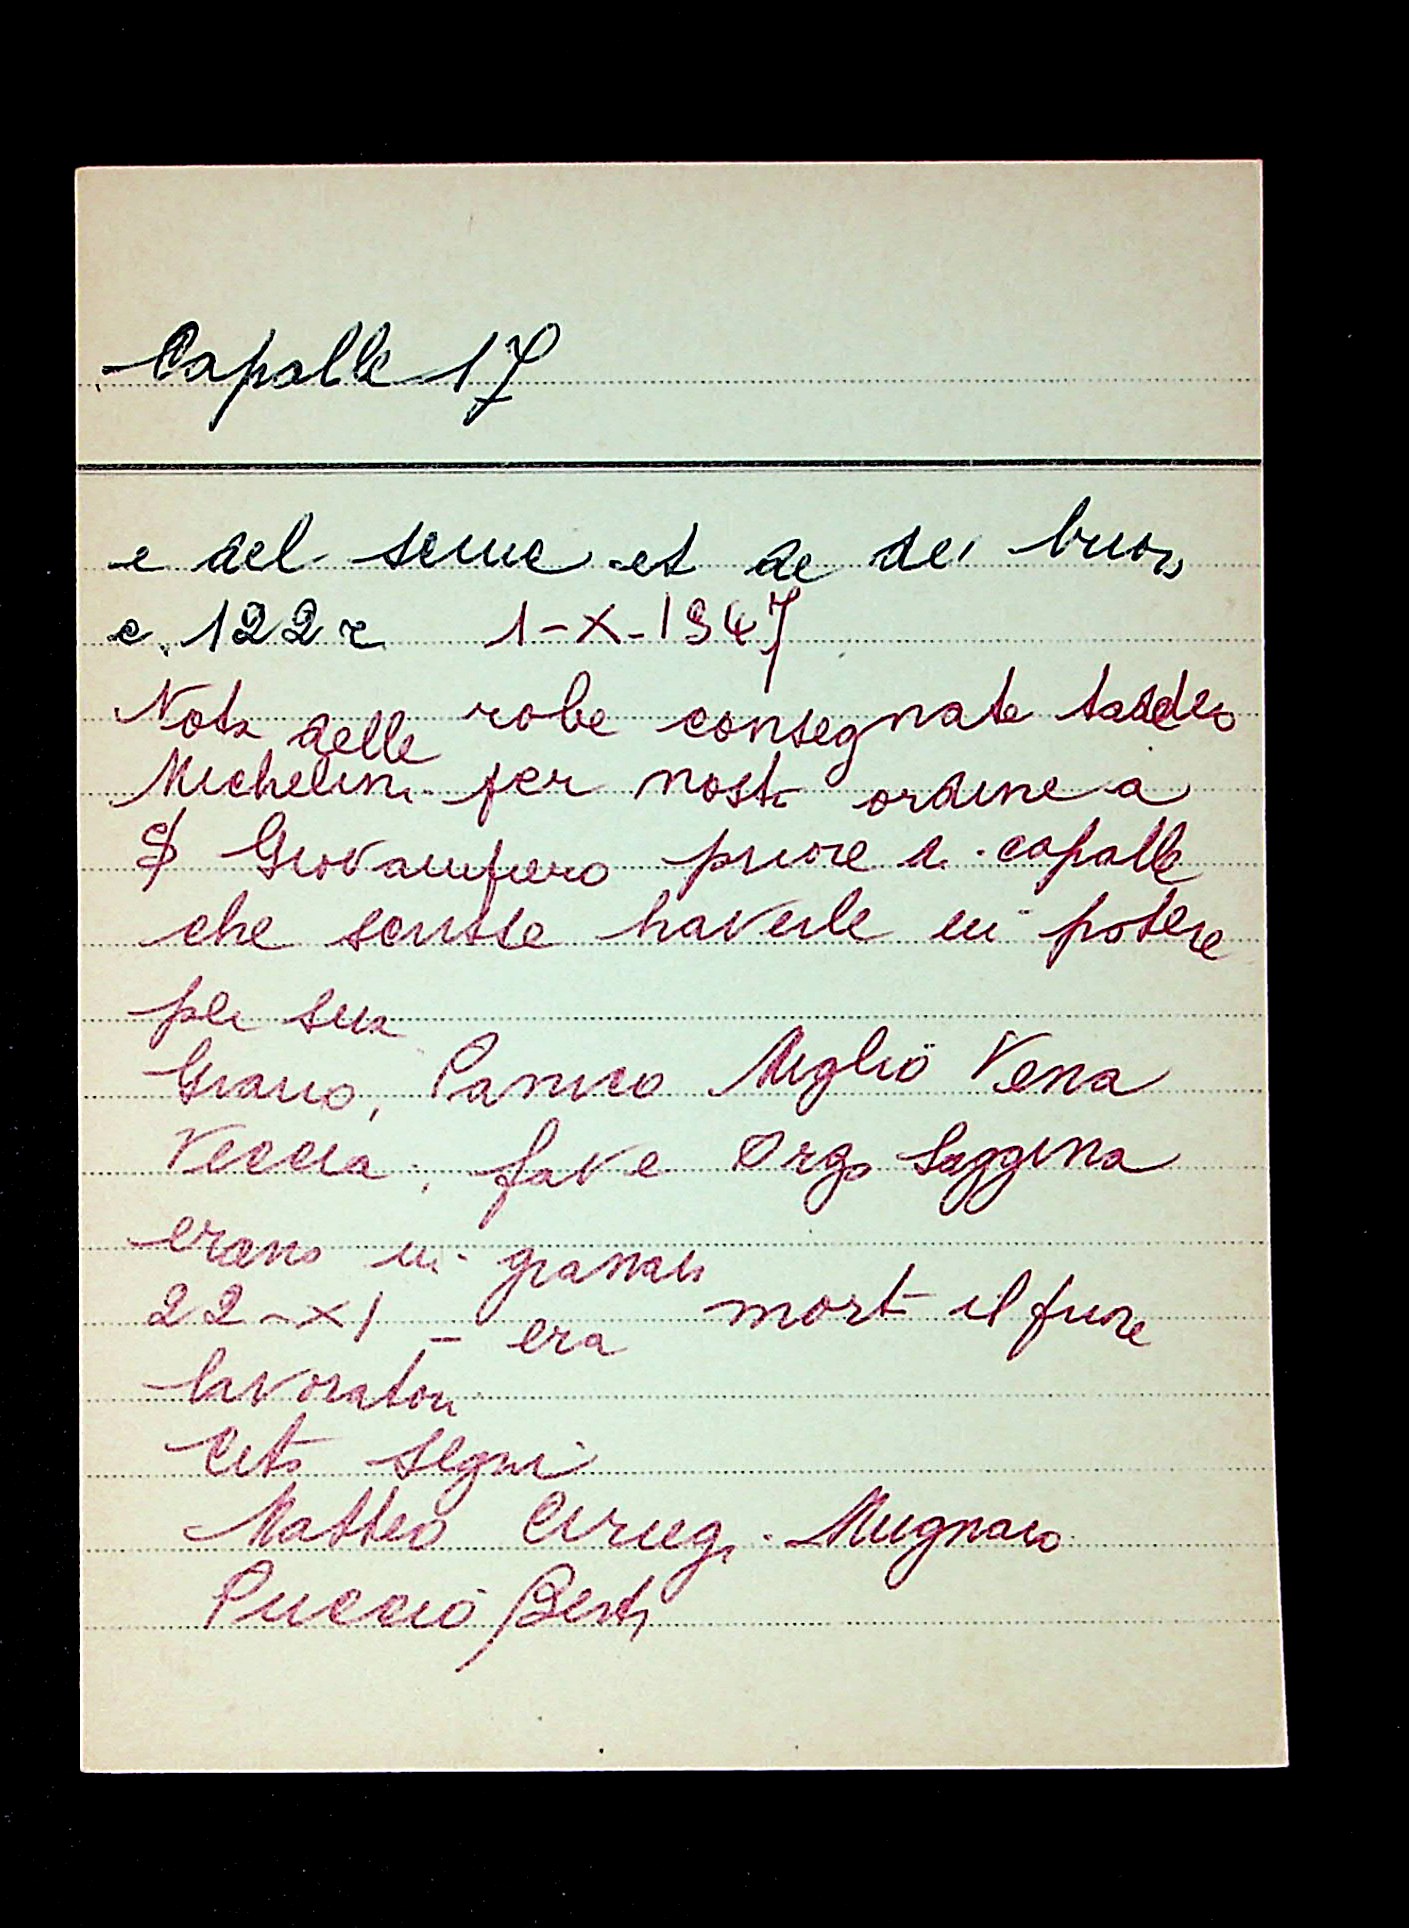 Capalle 17
e del seme et de dei buoi
c. 122 r 1-X-1347
Nota delle robe consegnate taddeo
Michelini per nostr ordine a
S Giovampiero priore di capalle
che scrisse haverle in potere
per sua
Grano, Panico Miglio Vena
Veccia, fave Orzo Saggina
erano in granaio
22-XI - era mort il priore
lavoratori
Cit segni
Matteo Cirugi Mugnaio
Puccio Berti